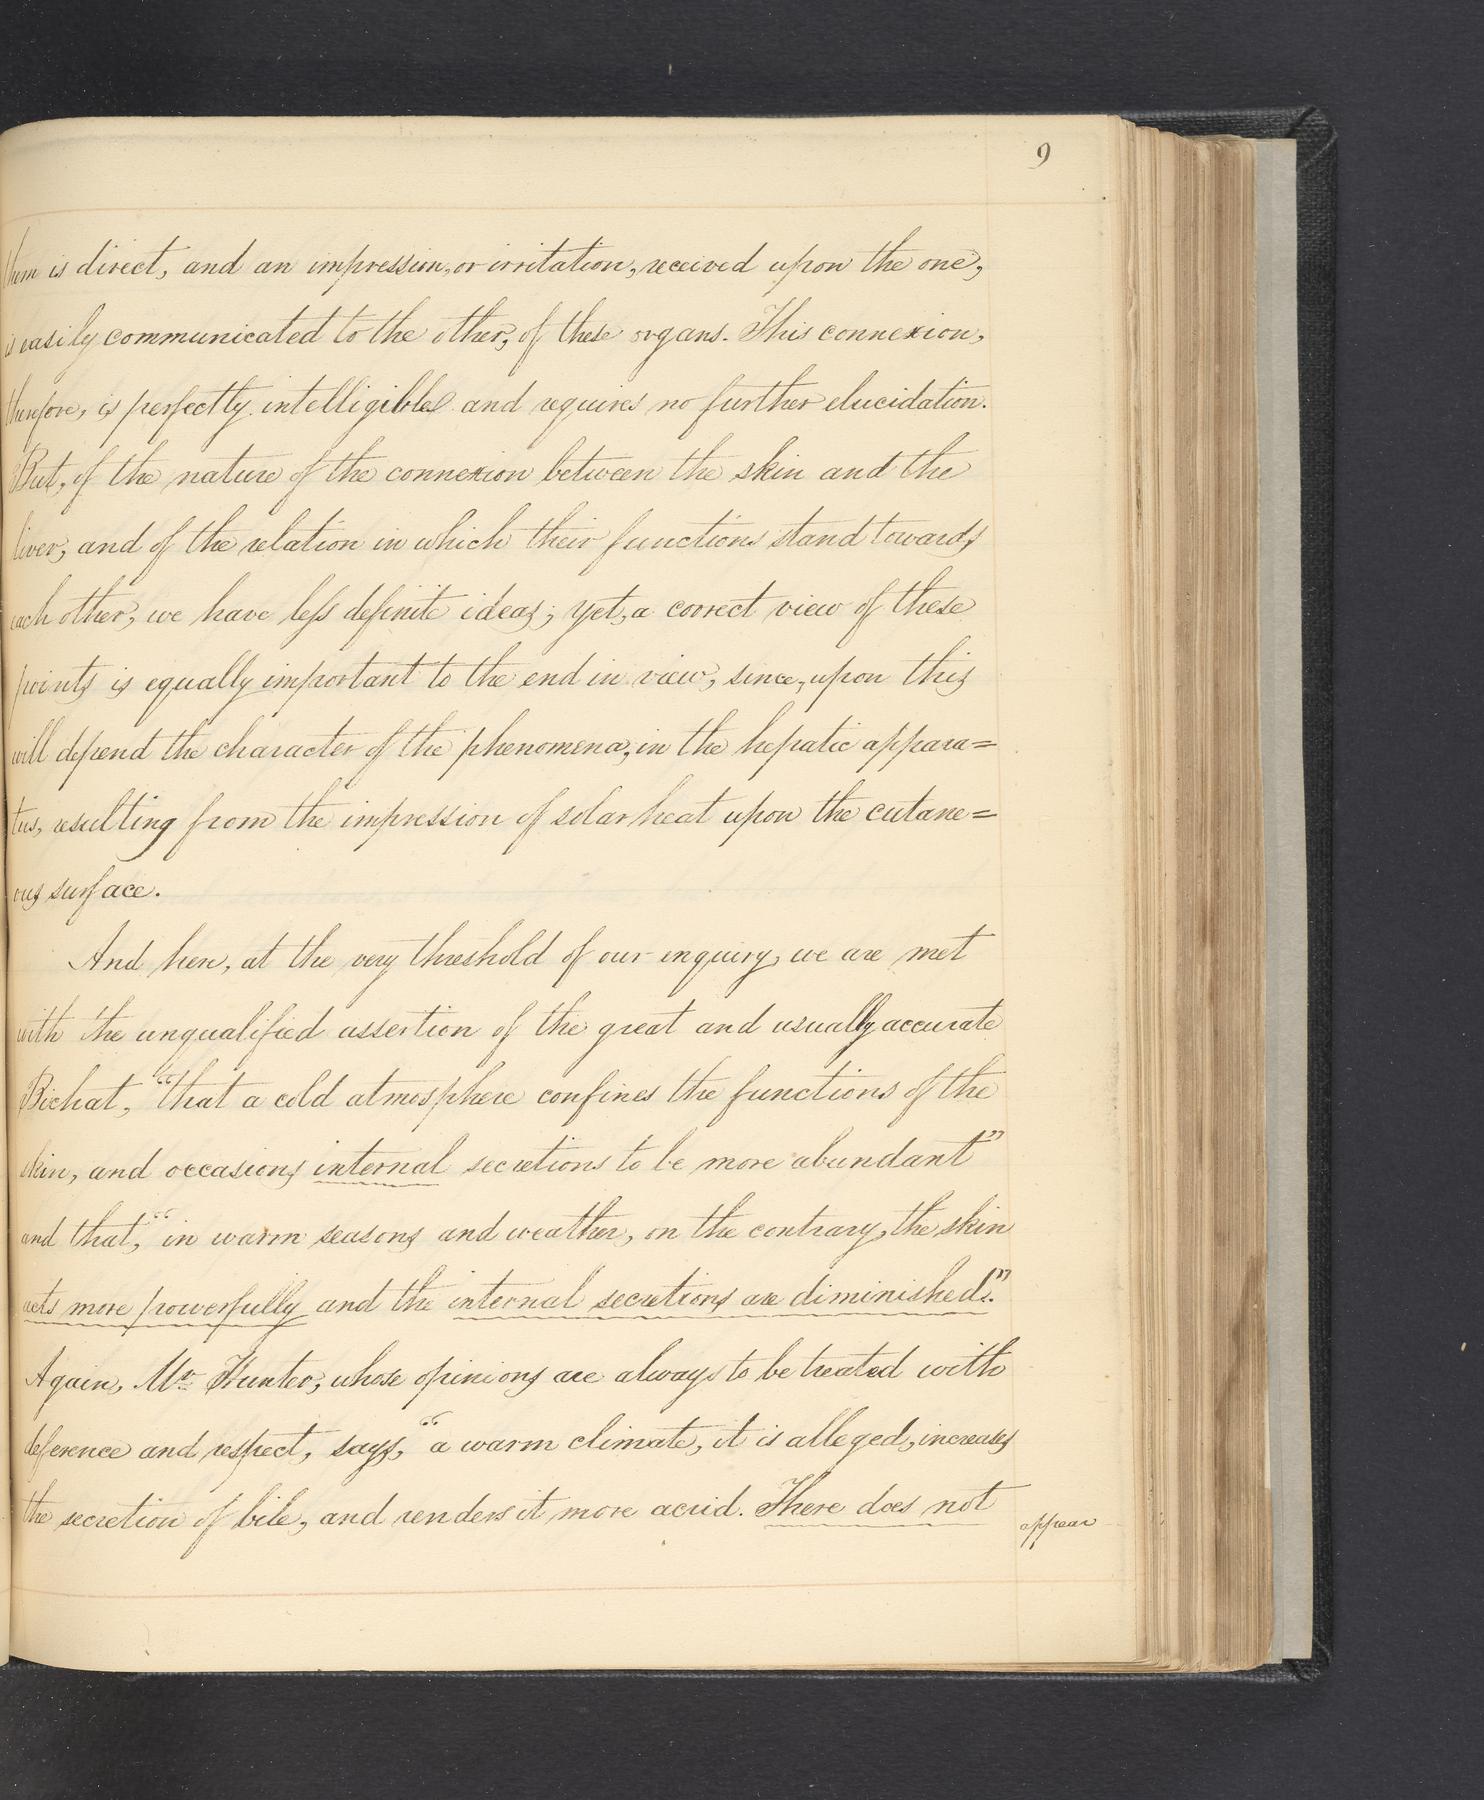 9
them is direct, and an impression, or irritation, received upon the one,
is easily communicated to the other, of these organs. This connexion,
therefore, is perfectly intelligible and requires no further elucidation.
But, of the nature of the connexion between the skin and the
liver, and of the relation in which their functions stand towards
each other, we have less definite ideas; yet, a correct view of these
points is equally important to the end in view, since, upon this
will depend the character of the phenomena, in the hepatic appara=
tus, resulting from the impression of solar heat upon the cutane=
ous surface.
And here, at the very threshold of our inquiry, we are met
with the unqualified assertion of the great and usually accurate
Bichat, "that a cold atmosphere confines the functions of the
skin, and occasions internal secretions to be more abundant"
and that, "in warm seasons and weather, on the contrary, the skin
acts more powerfully and the internal secretions are diminished."
Again, Mr Hunter, whose opinions are always to be treated with
deference and respect, says, "a warm climate, it is alleged, increases
the secretion of bile, and renders it more acrid. There does not
appear